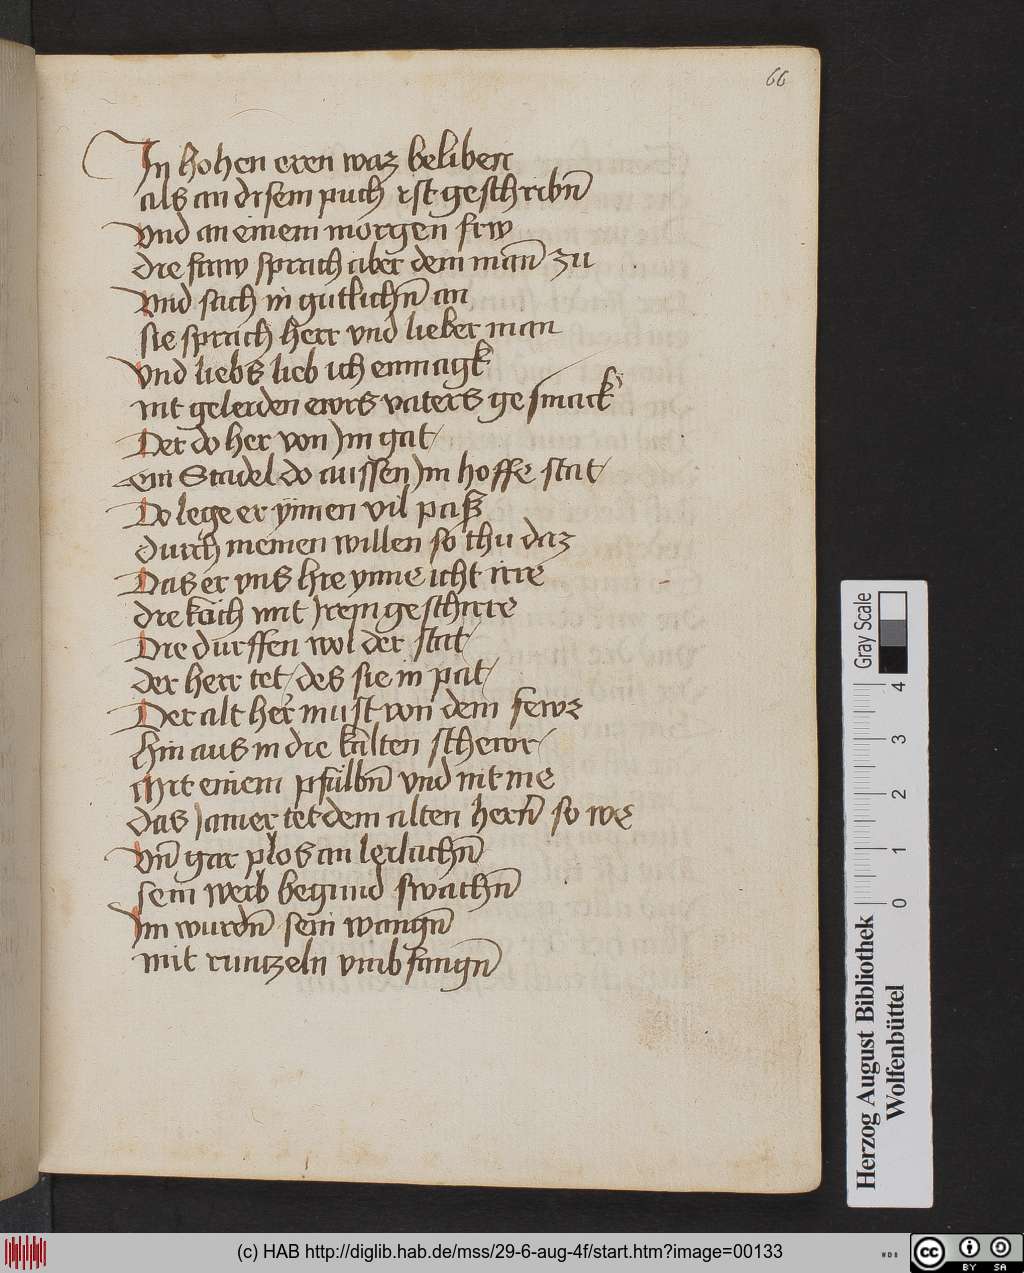 66
In hohen eren waz beliben
als an disem puch ist geschribn̄
Vnd an einem morgen frw
die fraw sprach aber dem man̄ zu
Vnd sach in gutlichn̄ an
sie sprach herr vnd lieber man
Vnd liebs lieb ich enmagk
nit geleiden ewrs vaters gesmack
Der do her von Jm gat
ein Stadel do aussen Jm hoffe stat
Do lege er ynnen vil paß
durch meinen willen so thu daz
Das er vns hie ynne icht irre
die koch mit Jrem geschirre
Die durffen wol der stat
der herr tet des sie in pat
Der alt her must von dem fewr
hin aus in die kalten schewr
Mit einem pfulbn̄ vnd nit me
das Jamer tet dem alten hern̄ so we
Vn̄ gar plos an leilachn̄
sein weib begund swachn̄
Im wurdn̄ sein wangn̄
mit runtzeln vmbfangn̄
Gray Scale
0 1 2 3 4
Herzog August Bibliothek
Wolfenbüttel
(c) HAB http://diglib.hab.de/mss/29-6-aug-4f/start.htm?image=00133
WDB
cc BY SA